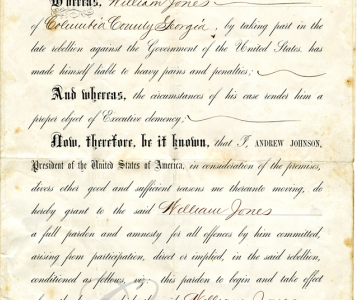 Whereas, William Jones
of Columbia County Georgia, by taking part in the
late rebellion against the Government of the United States, has
made himself liable to heavy pains and penalties;
And whereas, the circumstances of his case render him a
proper object of Executive clemency;
Now, therefore, be it known, that I, ANDREW JOHNSON,
President of the United States of America, in consideration of the premises,
divers other good and sufficient reasons me thereunto moving, do
hereby grant to the said William Jones
a full pardon and amnesty for all offences by him committed,
arising from participation, direct or implied, in the said rebellion,
conditioned as follows, viz: this pardon to begin and take effect
William Jones